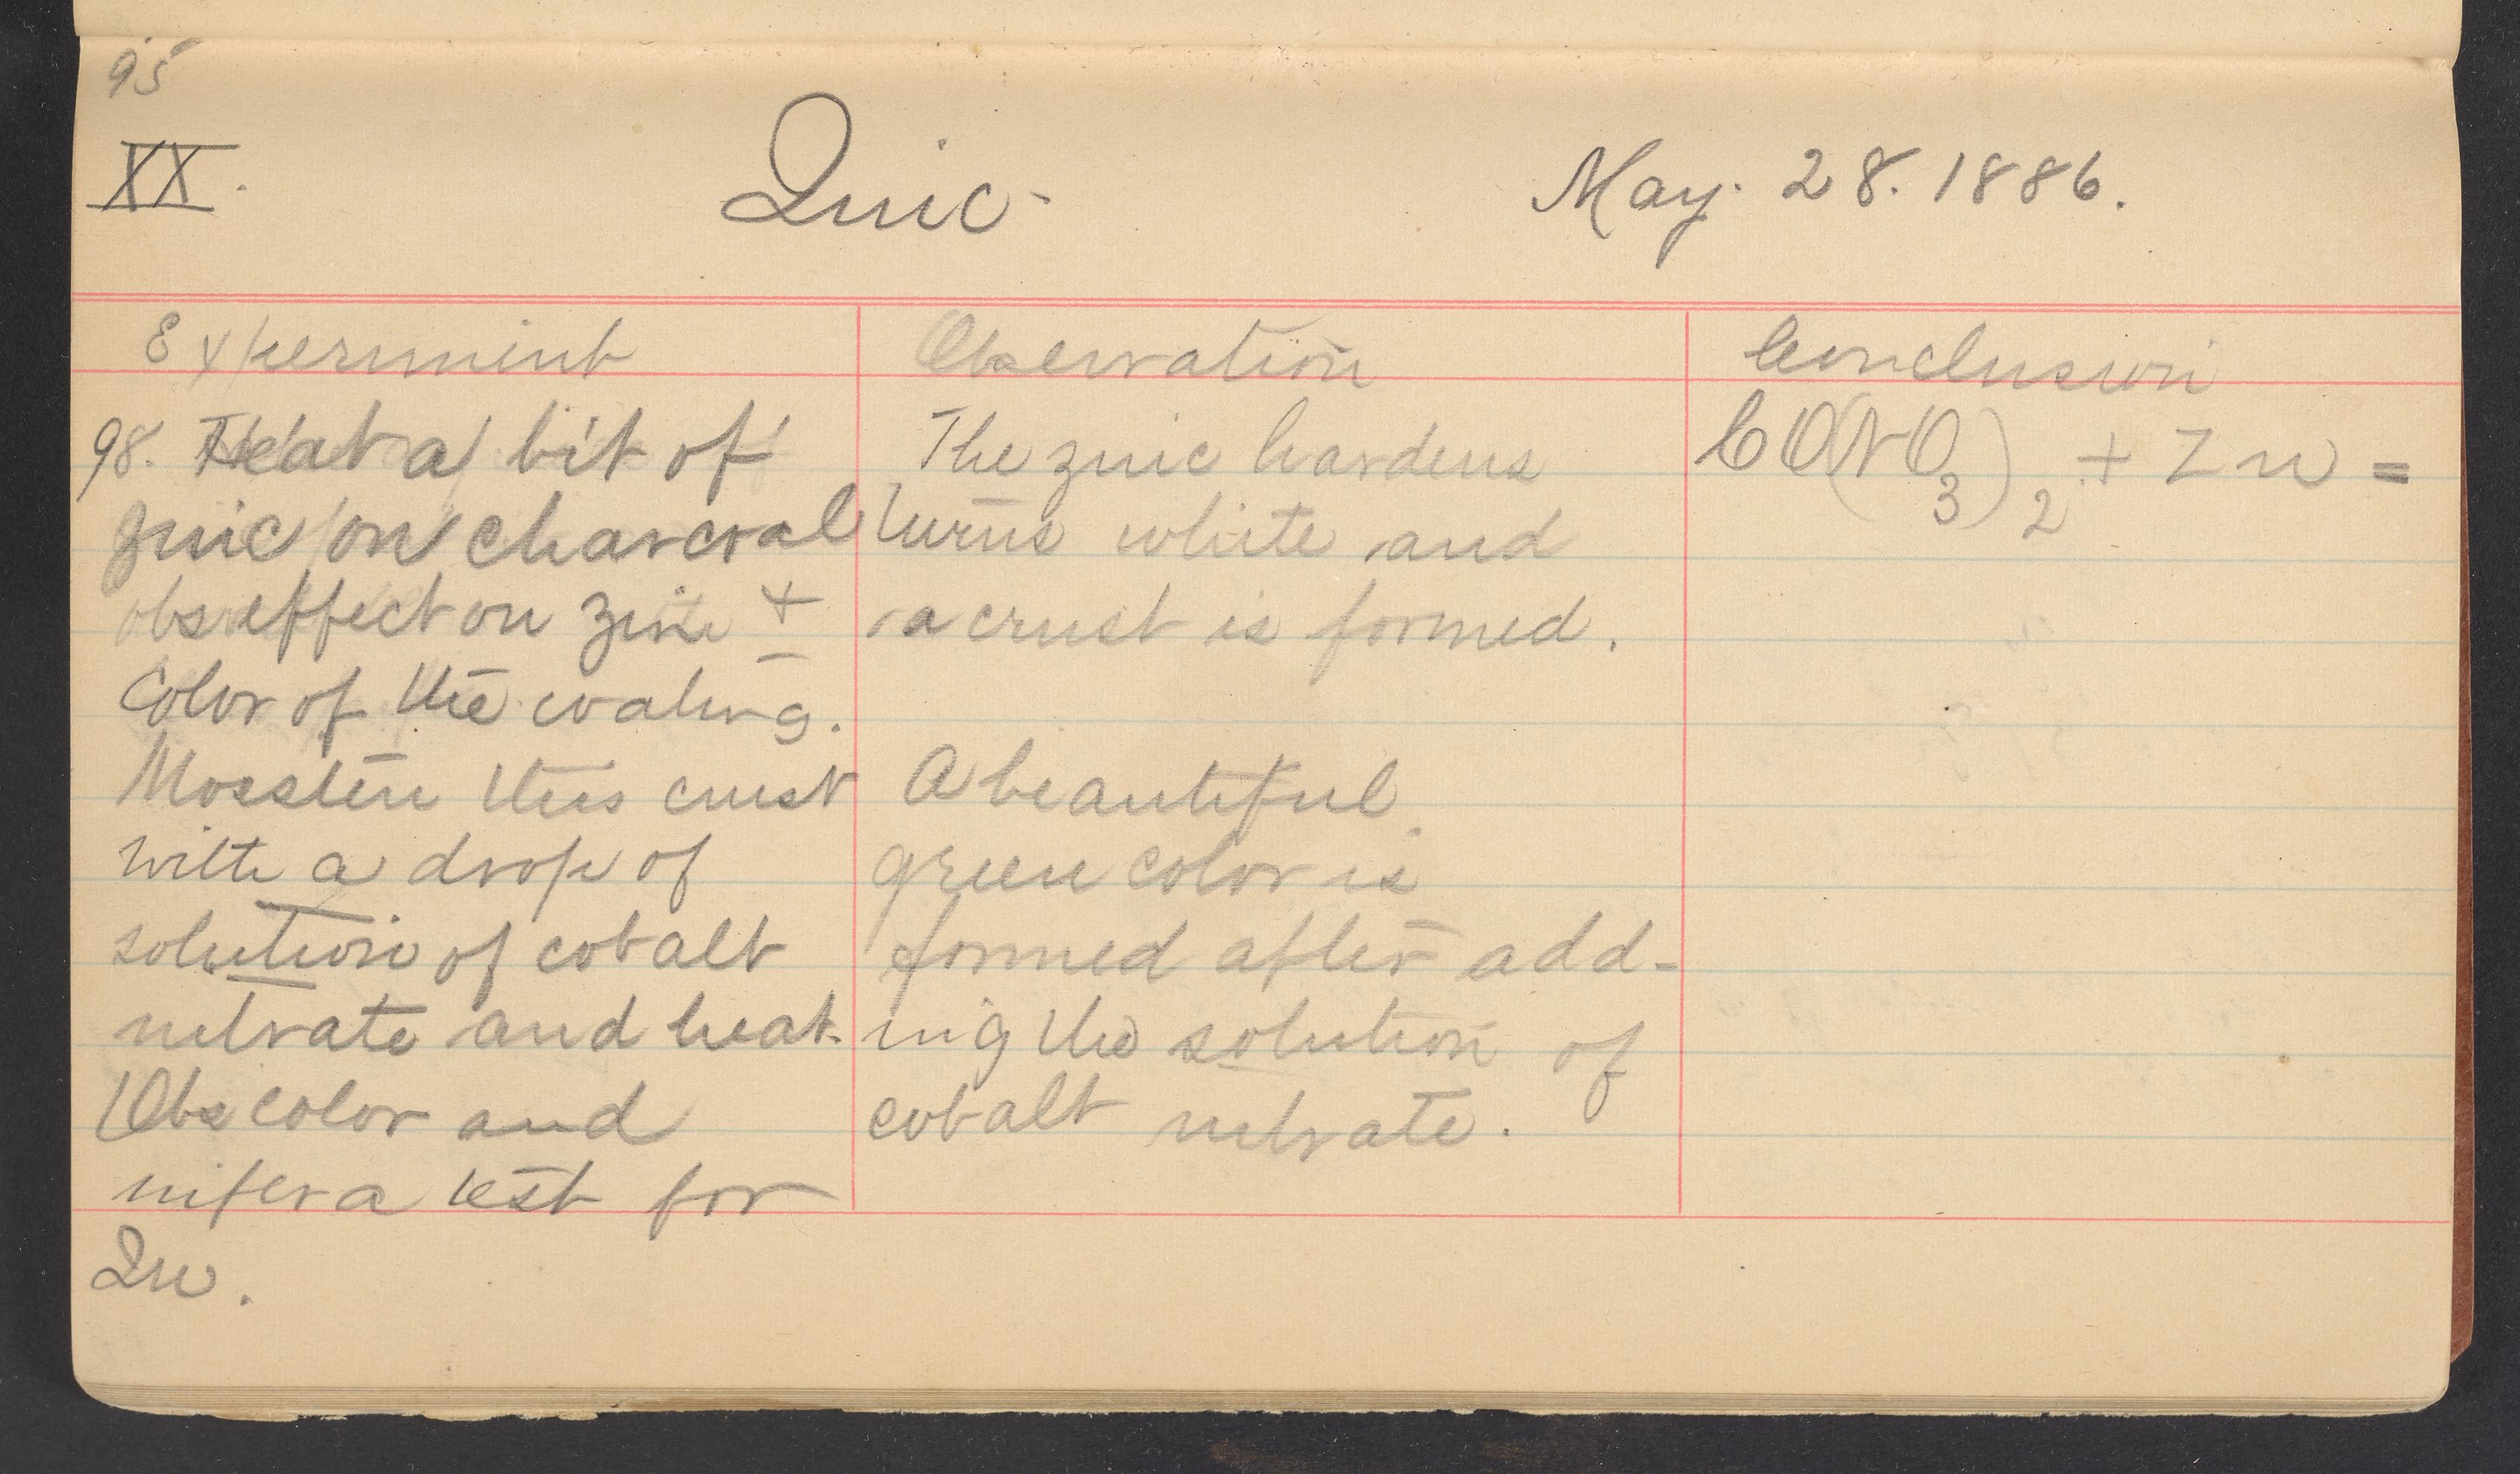 95
XX. Zinc- May. 28. 1886.
Experiment
98. Heat a bit of
zinc on charcoal
obs effect on zinc +
Color of the coating.
Moisten this crust
with a drop of
solution of cobalt
nitrate and heat.
Obs color and
infer a test for
Zn.
Observation
The zinc hardens
turns white and
a crust is formed.
A beautiful
green color is
formed after add-
ing the solution of
cobalt nitrate.
Conclusion
CO(NO3)2 + Zn =